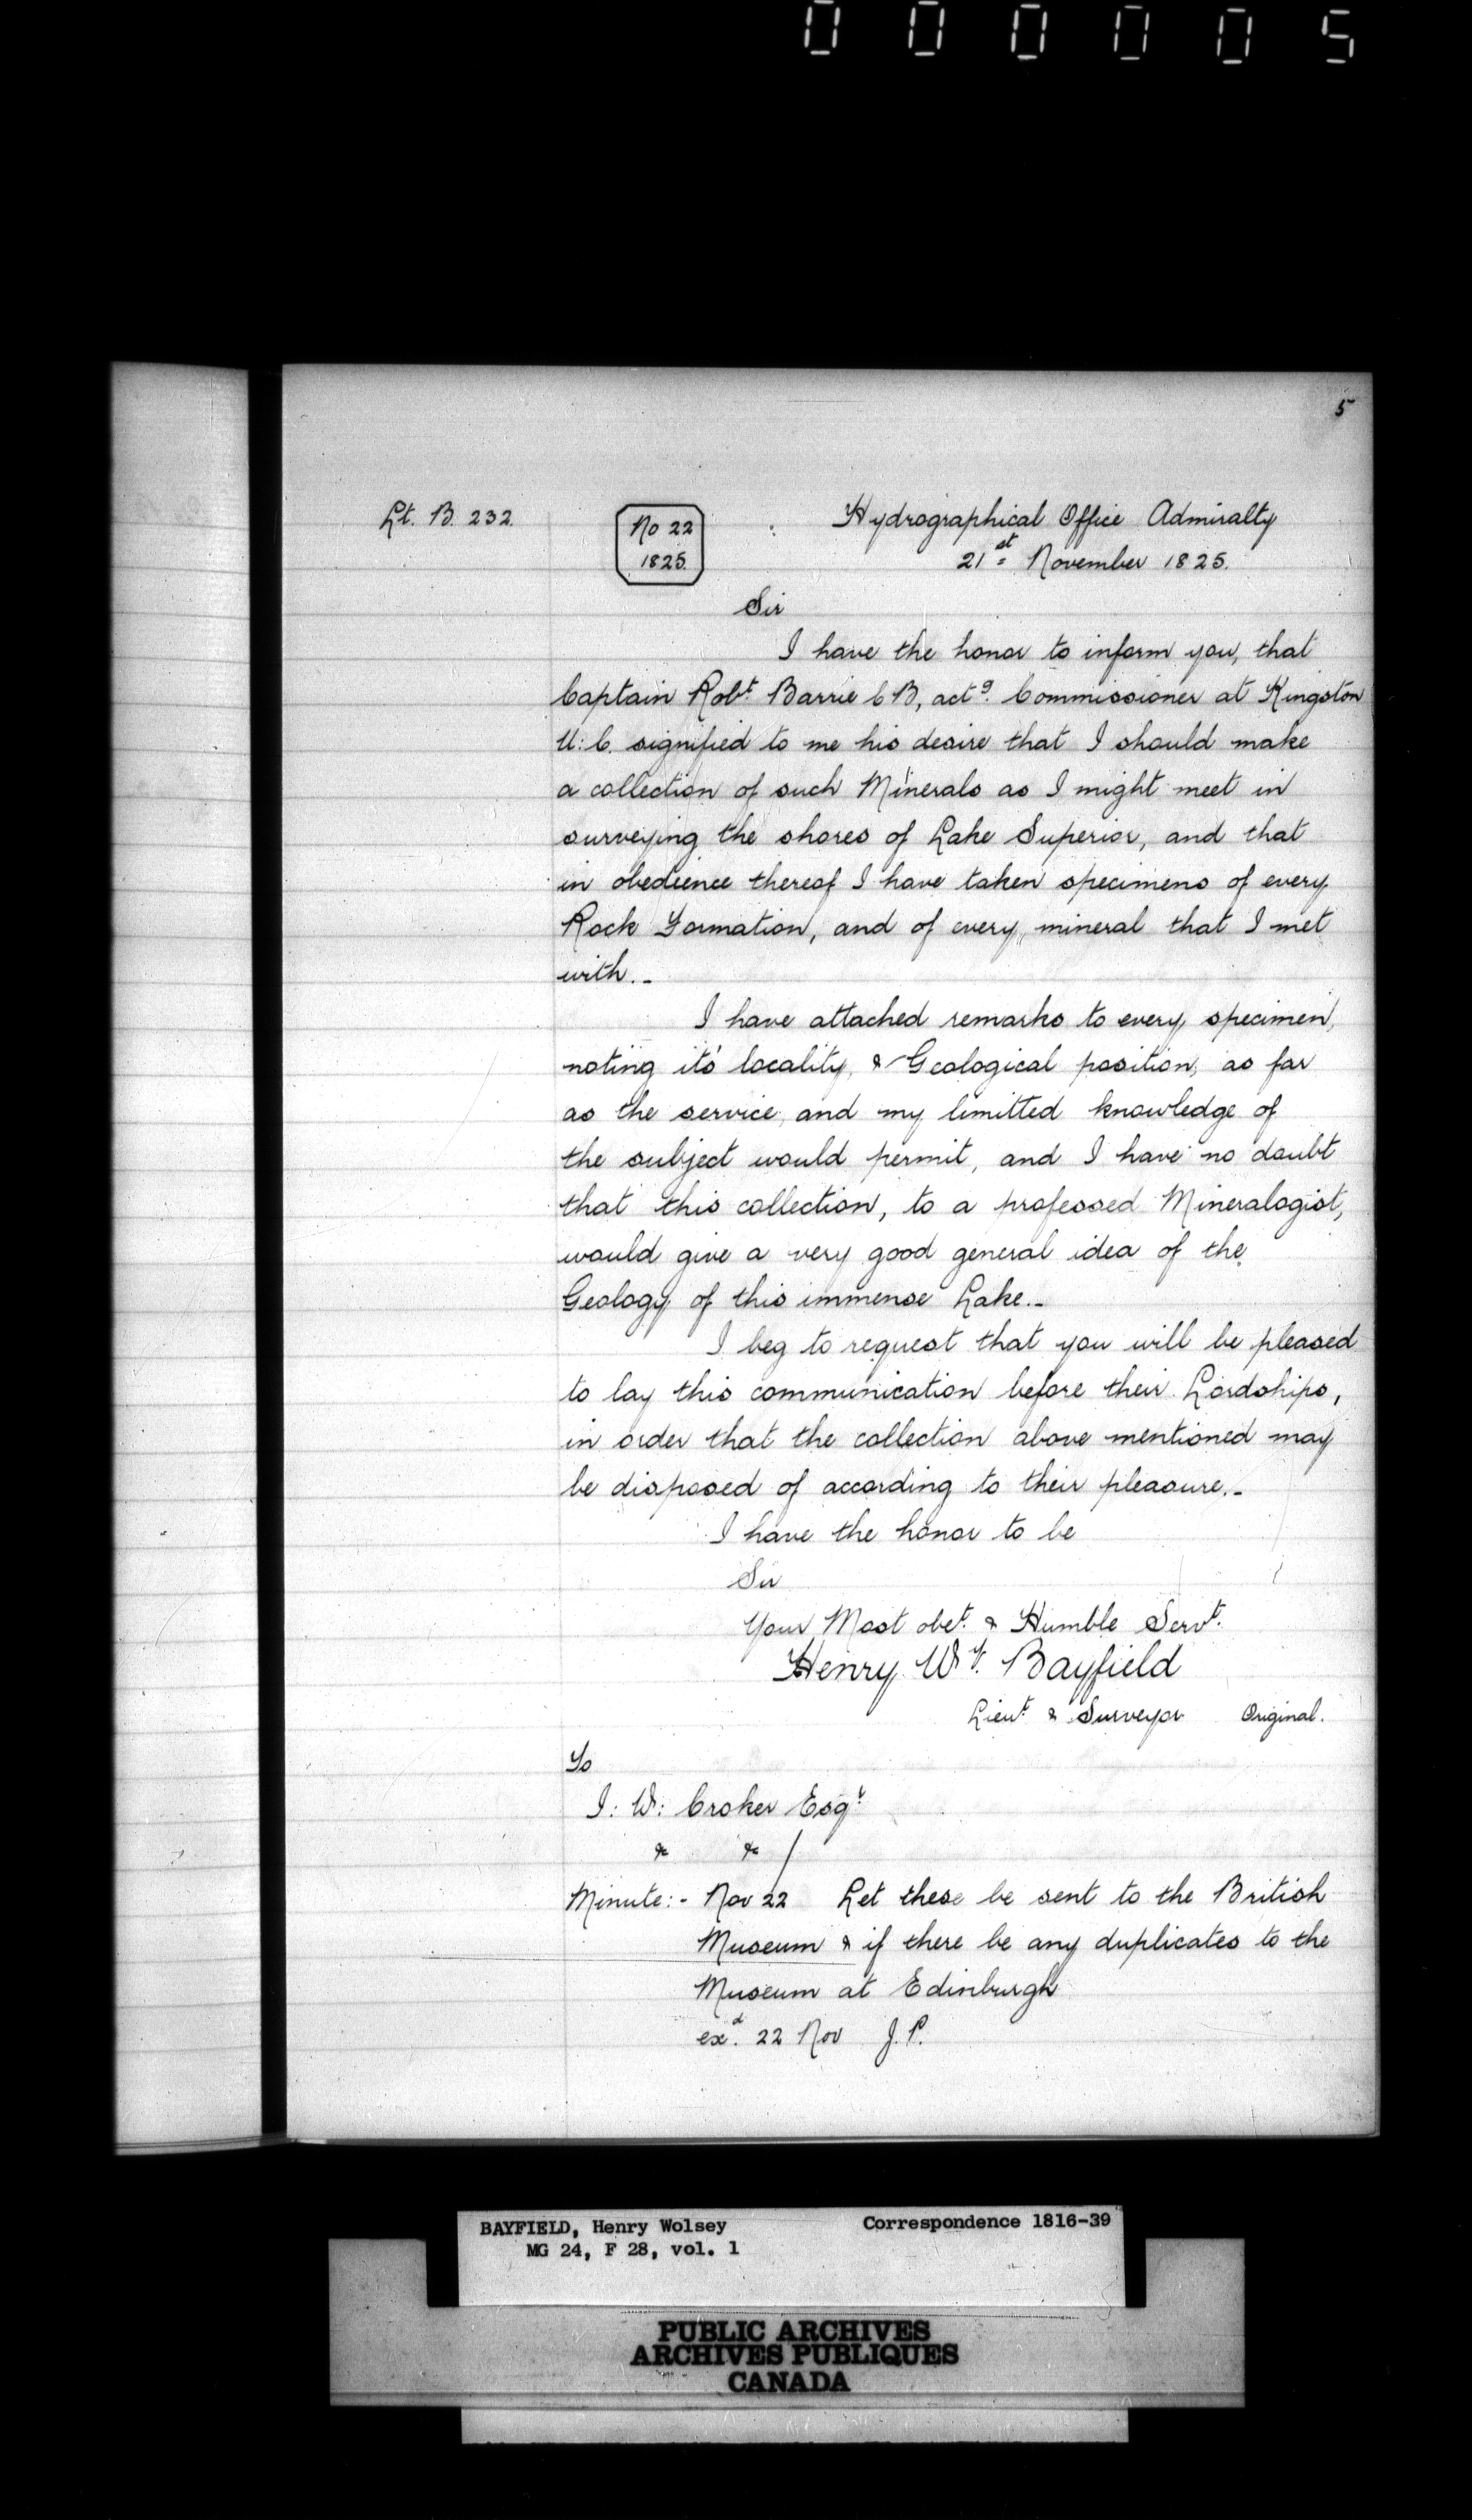 000005
5
Lt. B. 232.
No 22
1825.
Hydrographical Office Admiralty
21st November 1825.
Sir
I have the honor to inform you, that
Captain Robt. Barrie CB, actg. Commissioner at Kingston
U:C. signified to me his desire that I should make
a collection of such Minerals as I might meet in
surveying the shores of Lake Superior, and that
in obedience thereof I have taken specimens of every
Rock Formation, and of every mineral that I met
with.-
I have attached remarks to every specimen,
noting its' locality, & Geological position, as far
as the service, and my limitted knowledge of
the subject would permit, and I have no doubt
that this collection, to a professed Mineralogist,
would give a very good general idea of the
Geology of this immense Lake.-
I beg to request that you will be pleased
to lay this communication before their Lordships,
in order that the collection above mentioned may
be disposed of according to their pleasure.-
I have the honor to be
Sir
Your Most obet. & Humble Servt.
Henry Wy. Bayfield
Lieut & Surveyor Original.
To
J: W: Croker Esqr
& &
Minute:- Nov 22 Let these be sent to the British
Museum & if there be any duplicates to the
Museum at Edinburgh
exd. 22 Nov J.P.
BAYFIELD, Henry Wolsey Correspondence 1816-39
MG 24, F 28, vol. 1
PUBLIC ARCHIVES
ARCHIVES PUBLIQUES
CANADA